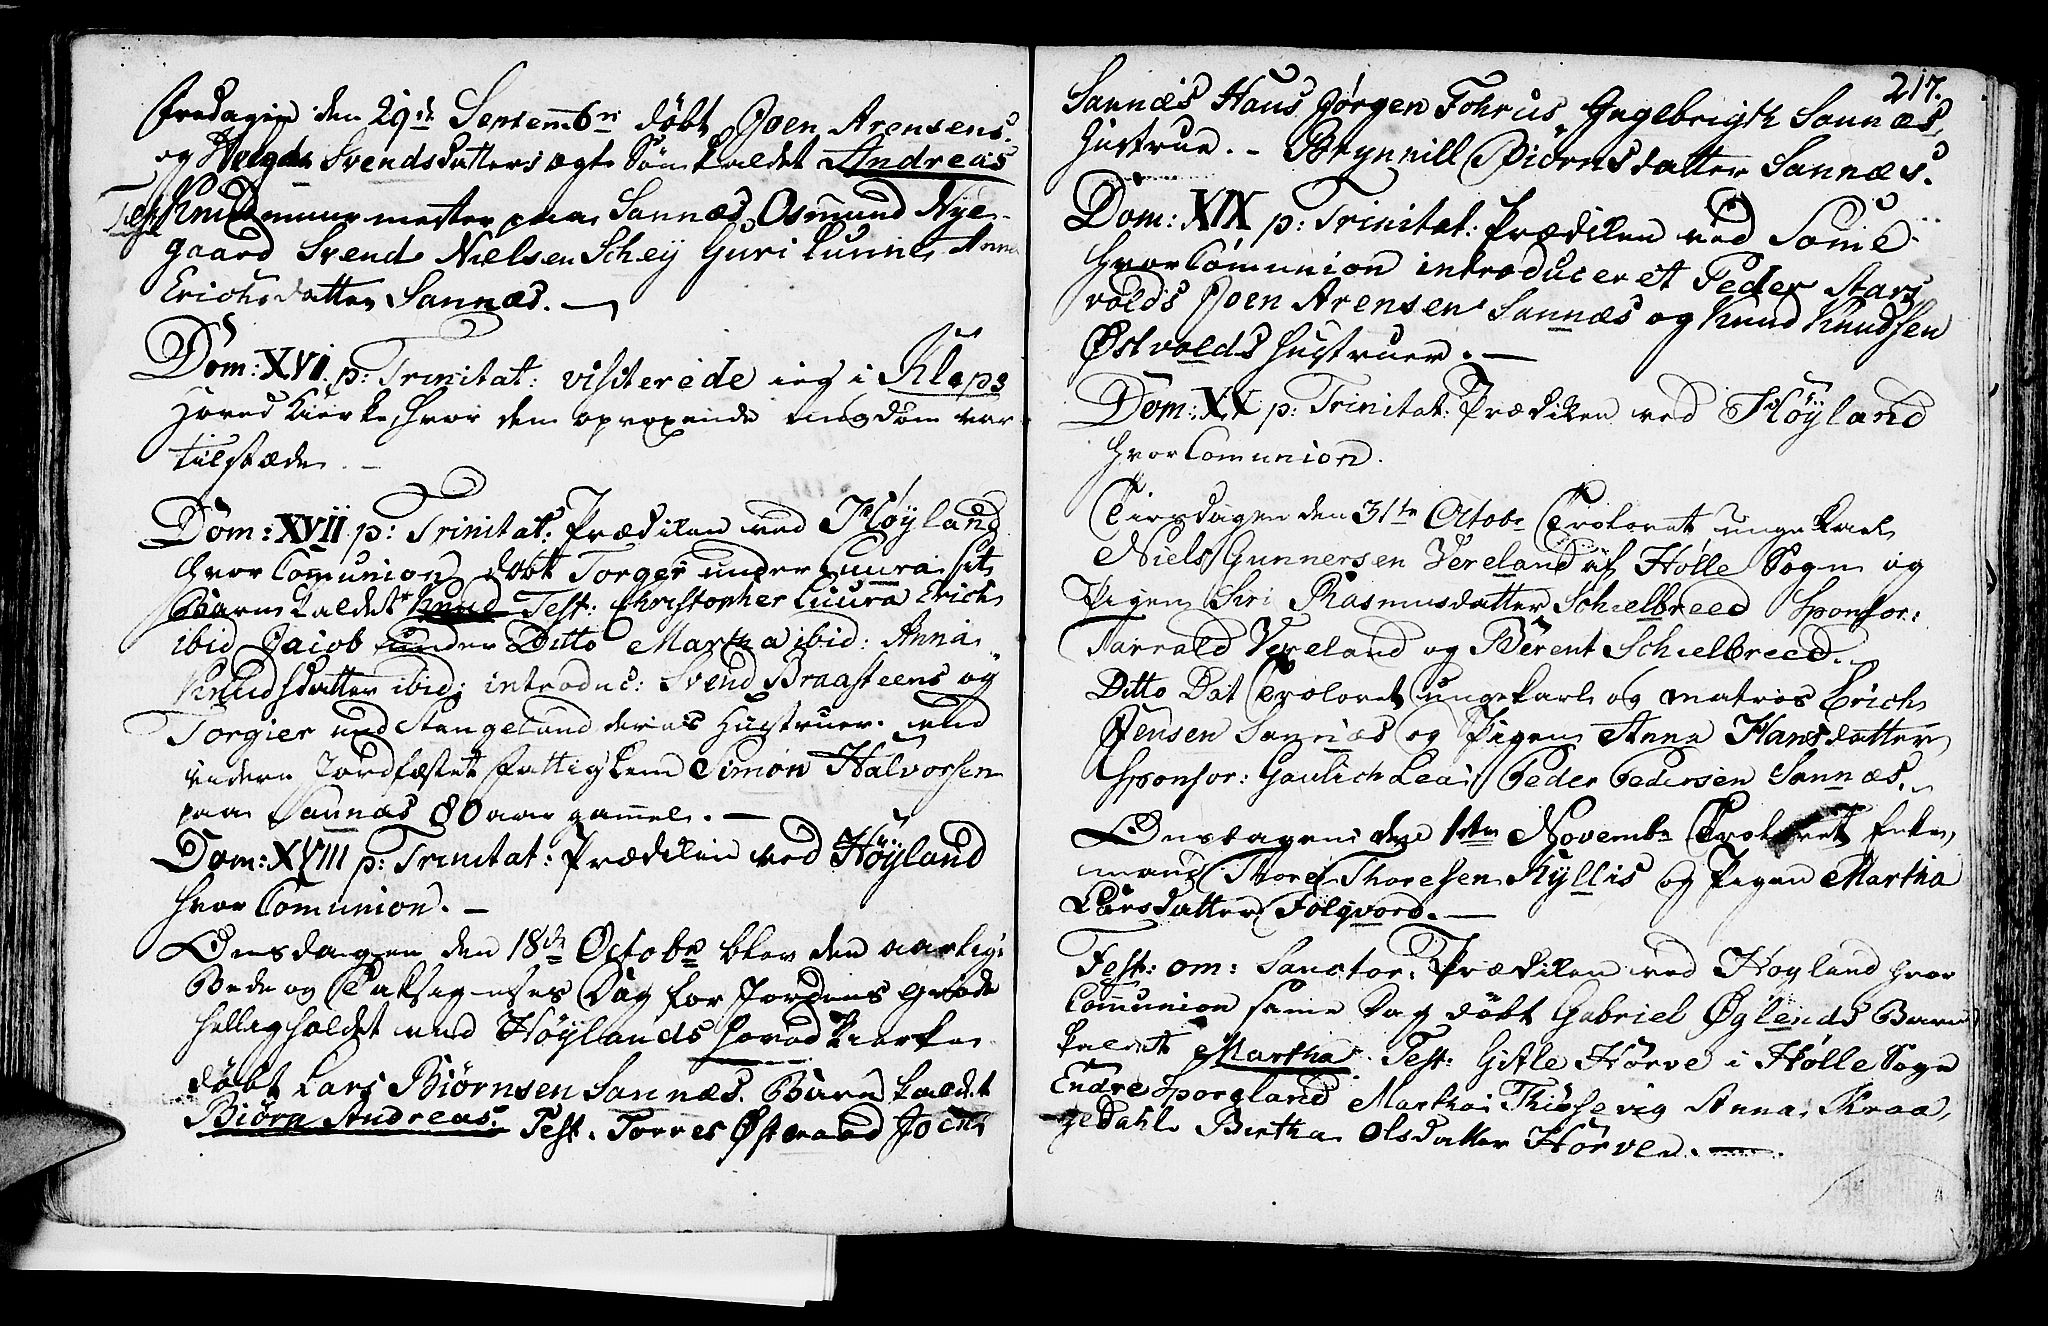 Fredagen den 29de Septembr døbt Joen Arensens
og Helgde Svendsdatters ægte Søn kaldet Andreas
Test: Knud muur mester paa Sannæs, Osmund Nye-
gaard Svend Nielsen Schey Guri Lunne Anna
Erichsdatter Sannæs. —
Dom: XVI p: Trinitat: visiterede ieg i Kleps
Hoved Kierke, hvor den opvoxende ungdom var
tilstæde. —
Dom: XVII p: Trinitat: Prædiken ved Höyland
hvor Communion, døbt Torger under Luura sit
Barn kaldet Knud Test: Christopher Luura Erich
ibid Jacob under Ditto Martha ibid: Anna
Knudsdatter ibid; introduc: Svend Braasteens og
Torgier ved Stangeland deres Hustruer. end
videre Jordfæstet fattig Lem Simon Halvorsen
paa Sannæs 80 aar gammel. —
Dom: XVIII p: Trinitat: Prædiken ved Höyland
hvor Communion. —
Onsdagen den 18de Octobr blev den aarlig
Bede og Taksigelses Dag for Jordens Grøde
helligholdet ved Höylands hoved Kierke
døbt Lars Biørnsen Sannæs. Barn kaldet
Biørn Andreas. Test. Torres Østraad Joen
217.
Sannæs Hans Jørgen Fohrus, Engelbrigth Sannæs
Hustrue. - Brynnill Biörnsdatter Sannæs.
Dom: XIX p: Trinitat: Prædiken ved Somé
hvor Comunion introduceret Peder Stars
volds Joen Arensen Sannæs og Knud Knudsen
Østvolds Hustruer. —
Dom: XX p: Trinitat: Prædiken ved Höyland
hvor Comunion.
Tirsdagen den 31te Octobr Trolovet unge Karl
Niels Gunnersen Vereland af Hølle Sogn og
Pigen Siri Rasmusdatter Schielbreed Sponsor:
Tarrald Vereland og Berent Schielbreed.
Ditto Dat Trolovet ungekarl og matros Erich
Jensen Sannæs og Pigen Anna Hansdatter
Sponsor: Gaulich Lea, Peder Pedersen Sannæs.
Onsdagen den 1ste Novembr Trolovet Enke,
mand Thore Thoresen Kyllis og Pigen Martha
Larsdatter Folqvord. —
Fest: om: Sanctor. Prædiken ved Hoyland hvor
Communion samme Dag döbt Gabriel Øglends Barn
kaldet Martha. Test: Gitle Hörve i Hölle Sogn
Endre Sporeland Martha Thiösevig Anna Kraa,
gedahl Birtha Olsdatter Hörve. —